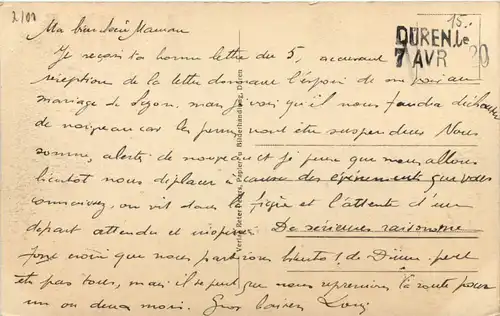 2/01
15.
DÜREN, le
7 AVR 20
Ma bien chère Maman
Je reçois ta bonne lettre du 5, accusant
réception de la lettre donnant l'espoir de
mariage de mais je vois qu'il nous faudra
de nouveau car les perm. vont être suspendues Nous
sommes alertés de nouveau et je pense que nous allons
bientôt nous déplacer à cause des événements que vous
connaissez, on vit dans la fièvre et l'attente d'un
départ attendu et De sérieuses raisons me
font croire que nous partirons bientôt de Düren peut
etre pas tous, mais il se peut que nous reprenions la route pour
un ou deux mois. Gros baisers
Verlag Peter Papier- u. Bilderhandlung, Düren